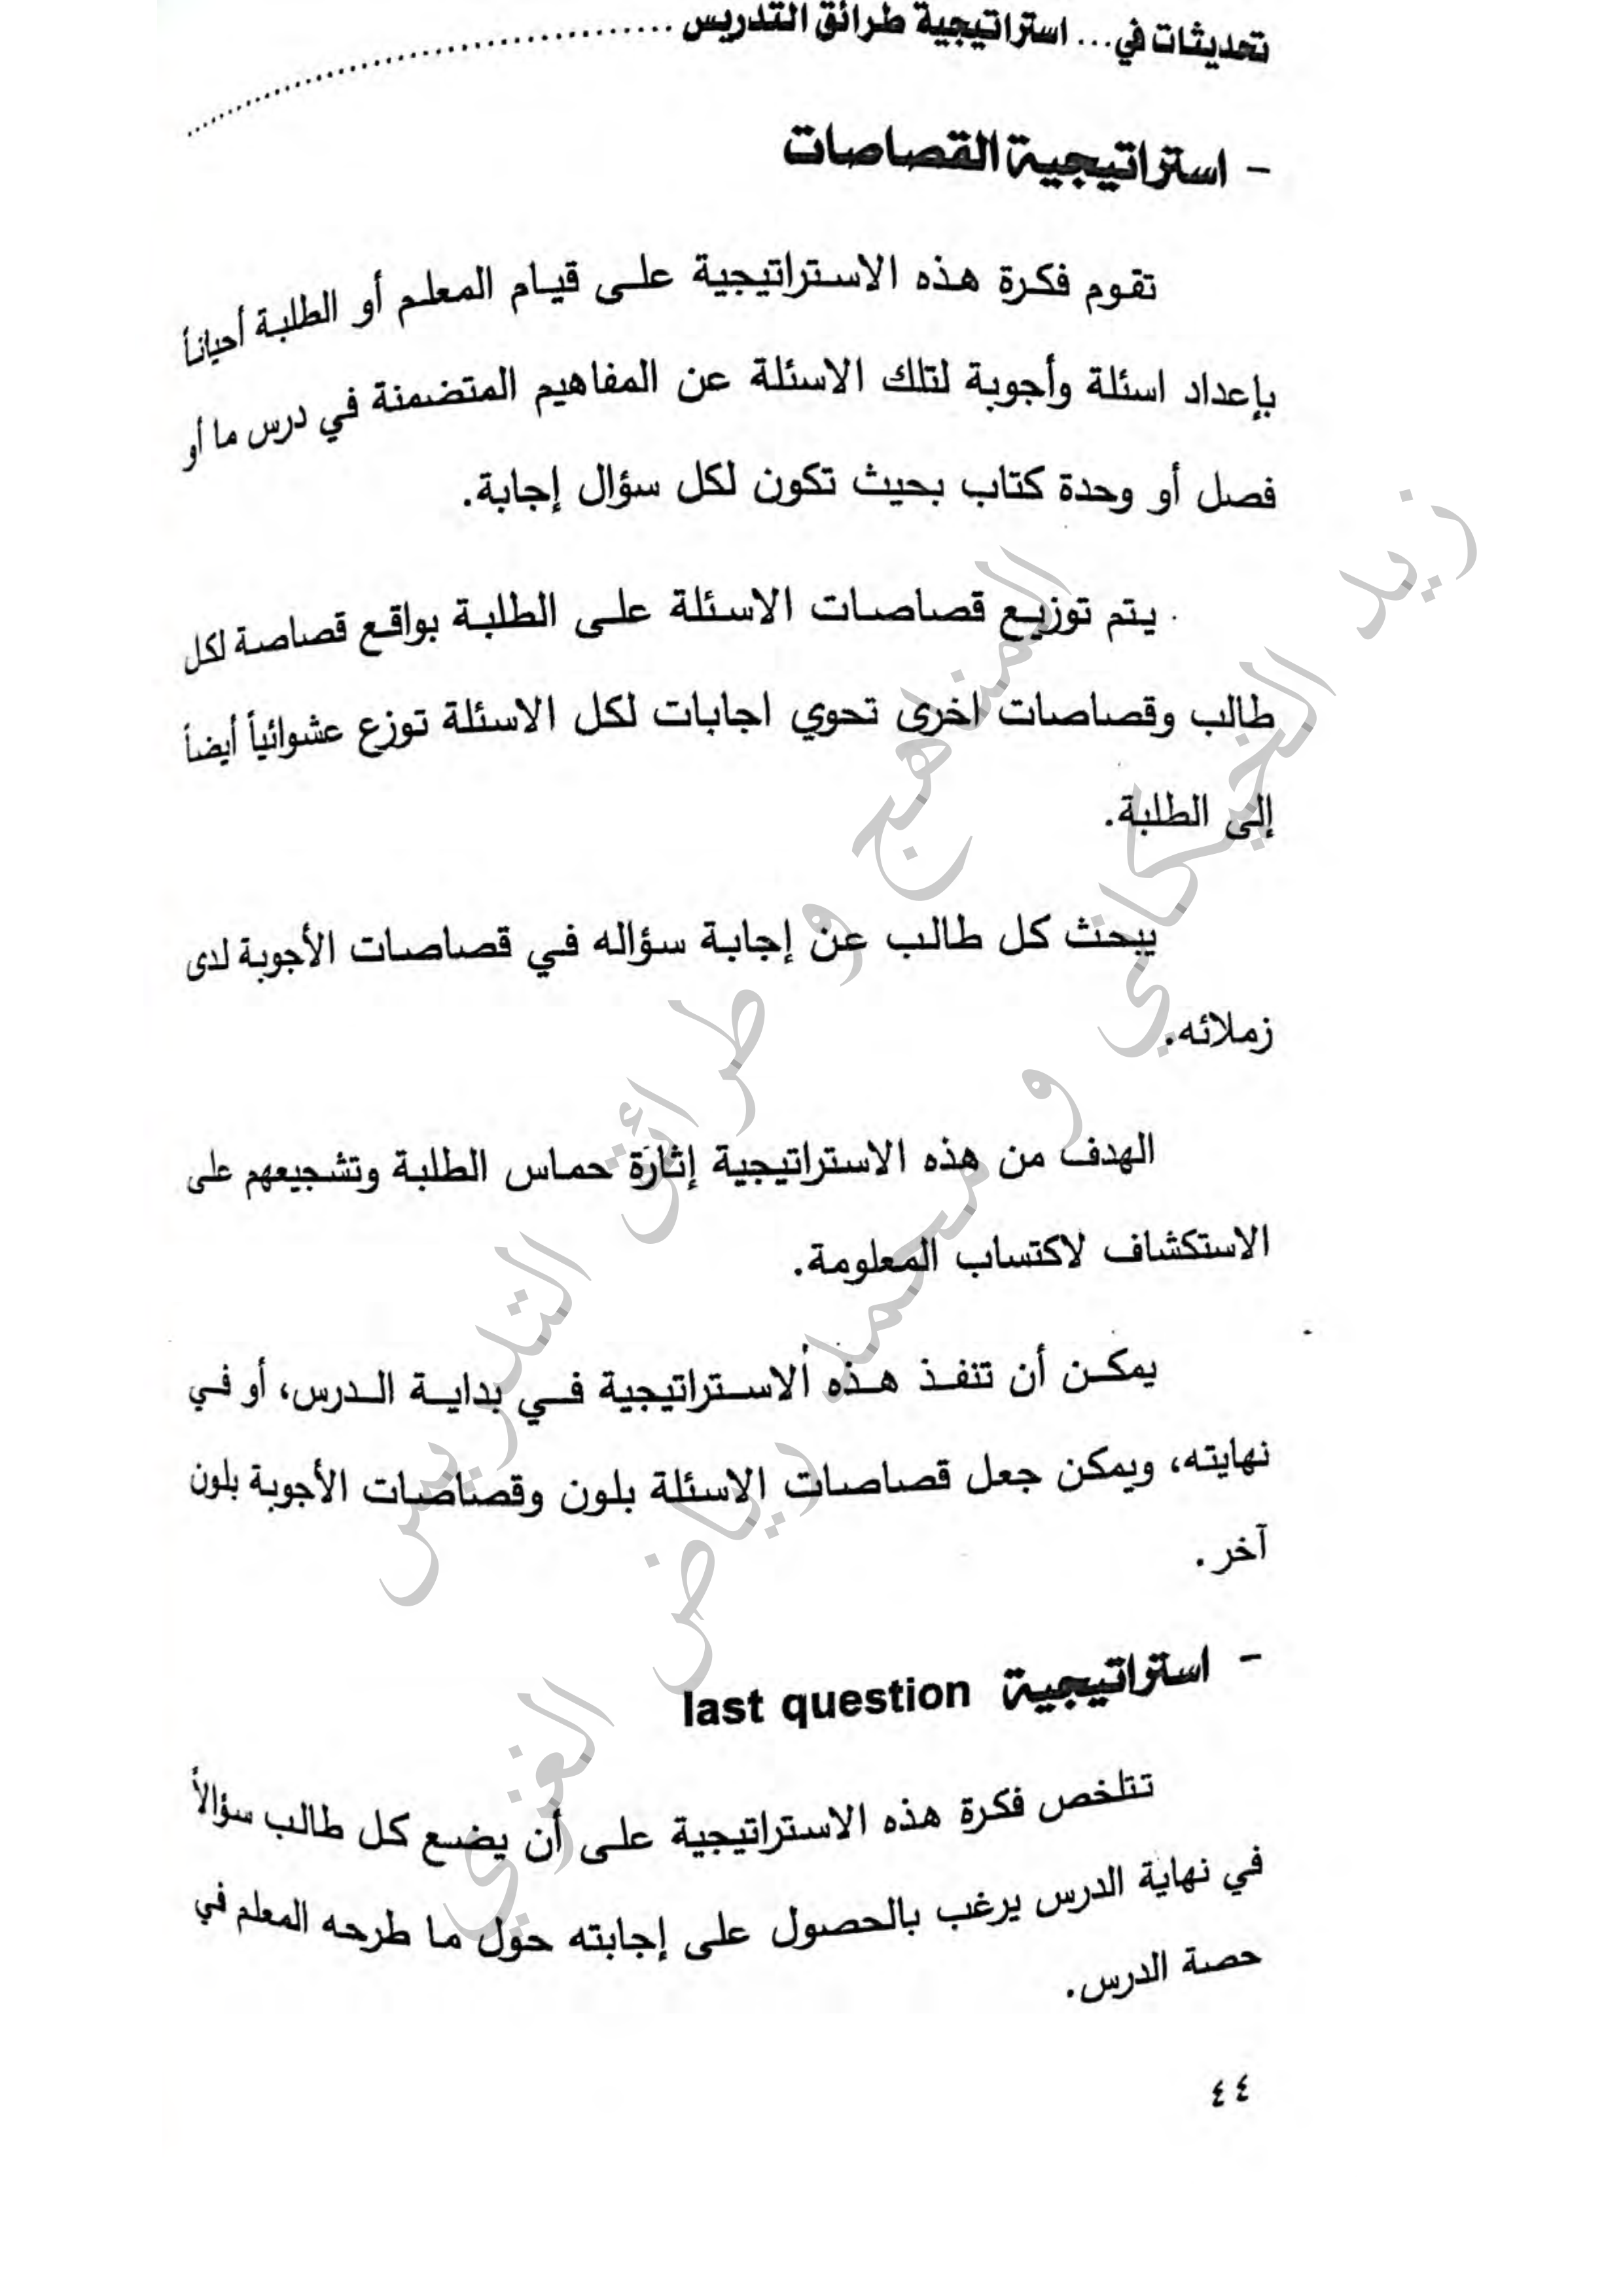 تحديثات في... استراتيجية طرائق التدريس
- استراتيجية القصاصات
تقوم فكرة هذه الاستراتيجية على قيام المعلم أو الطلبة أحياناً
بإعداد اسئلة وأجوبة لتلك الاسئلة عن المفاهيم المتضمنة في درس ما أو
فصل أو وحدة كتاب بحيث تكون لكل سؤال إجابة.
يتم توزيع قصاصات الاسئلة على الطلبة بواقع قصاصة لكل
طالب وقصاصات اخرى تحوي اجابات لكل الاسئلة توزع عشوائياً أيضاً
إلى الطلبة.
يبحث كل طالب عن إجابة سؤاله في قصاصات الأجوبة لدى
زملائه.
الهدف من هذه الاستراتيجية إثارة حماس الطلبة وتشجيعهم على
الاستكشاف لاكتساب المعلومة.
يمكن أن تنفذ هذه الاستراتيجية في بداية الدرس، أو في
نهايته، ويمكن جعل قصاصات الاسئلة بلون وقصاصات الأجوبة بلون
آخر.
- استراتيجية last question
تتلخص فكرة هذه الاستراتيجية على أن يضع كل طالب سؤالاً
في نهاية الدرس يرغب بالحصول على إجابته حول ما طرحه المعلم في
حصة الدرس.
٤٤
المناهج و طرائق التدريس
زيد الخيكاني و محمد رياض الغزي